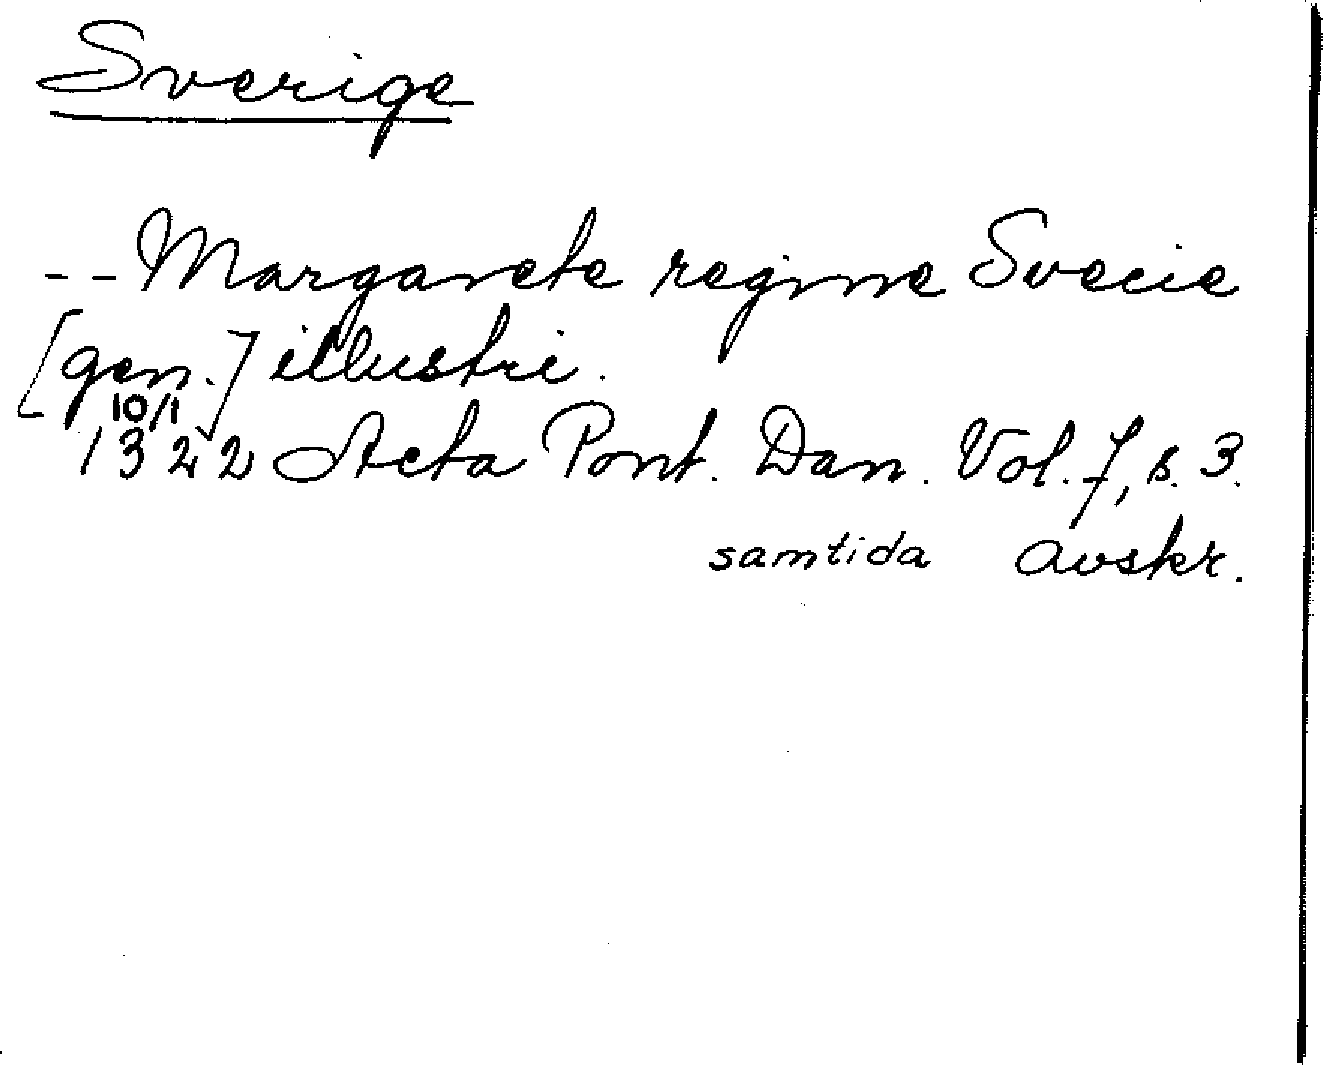 Sverige
-- Margarete regine Svecie
[gen.] illustri.
10/1
1322 Acta Pont. Dan. Vol. 7, s. 3.
samtida avskr.